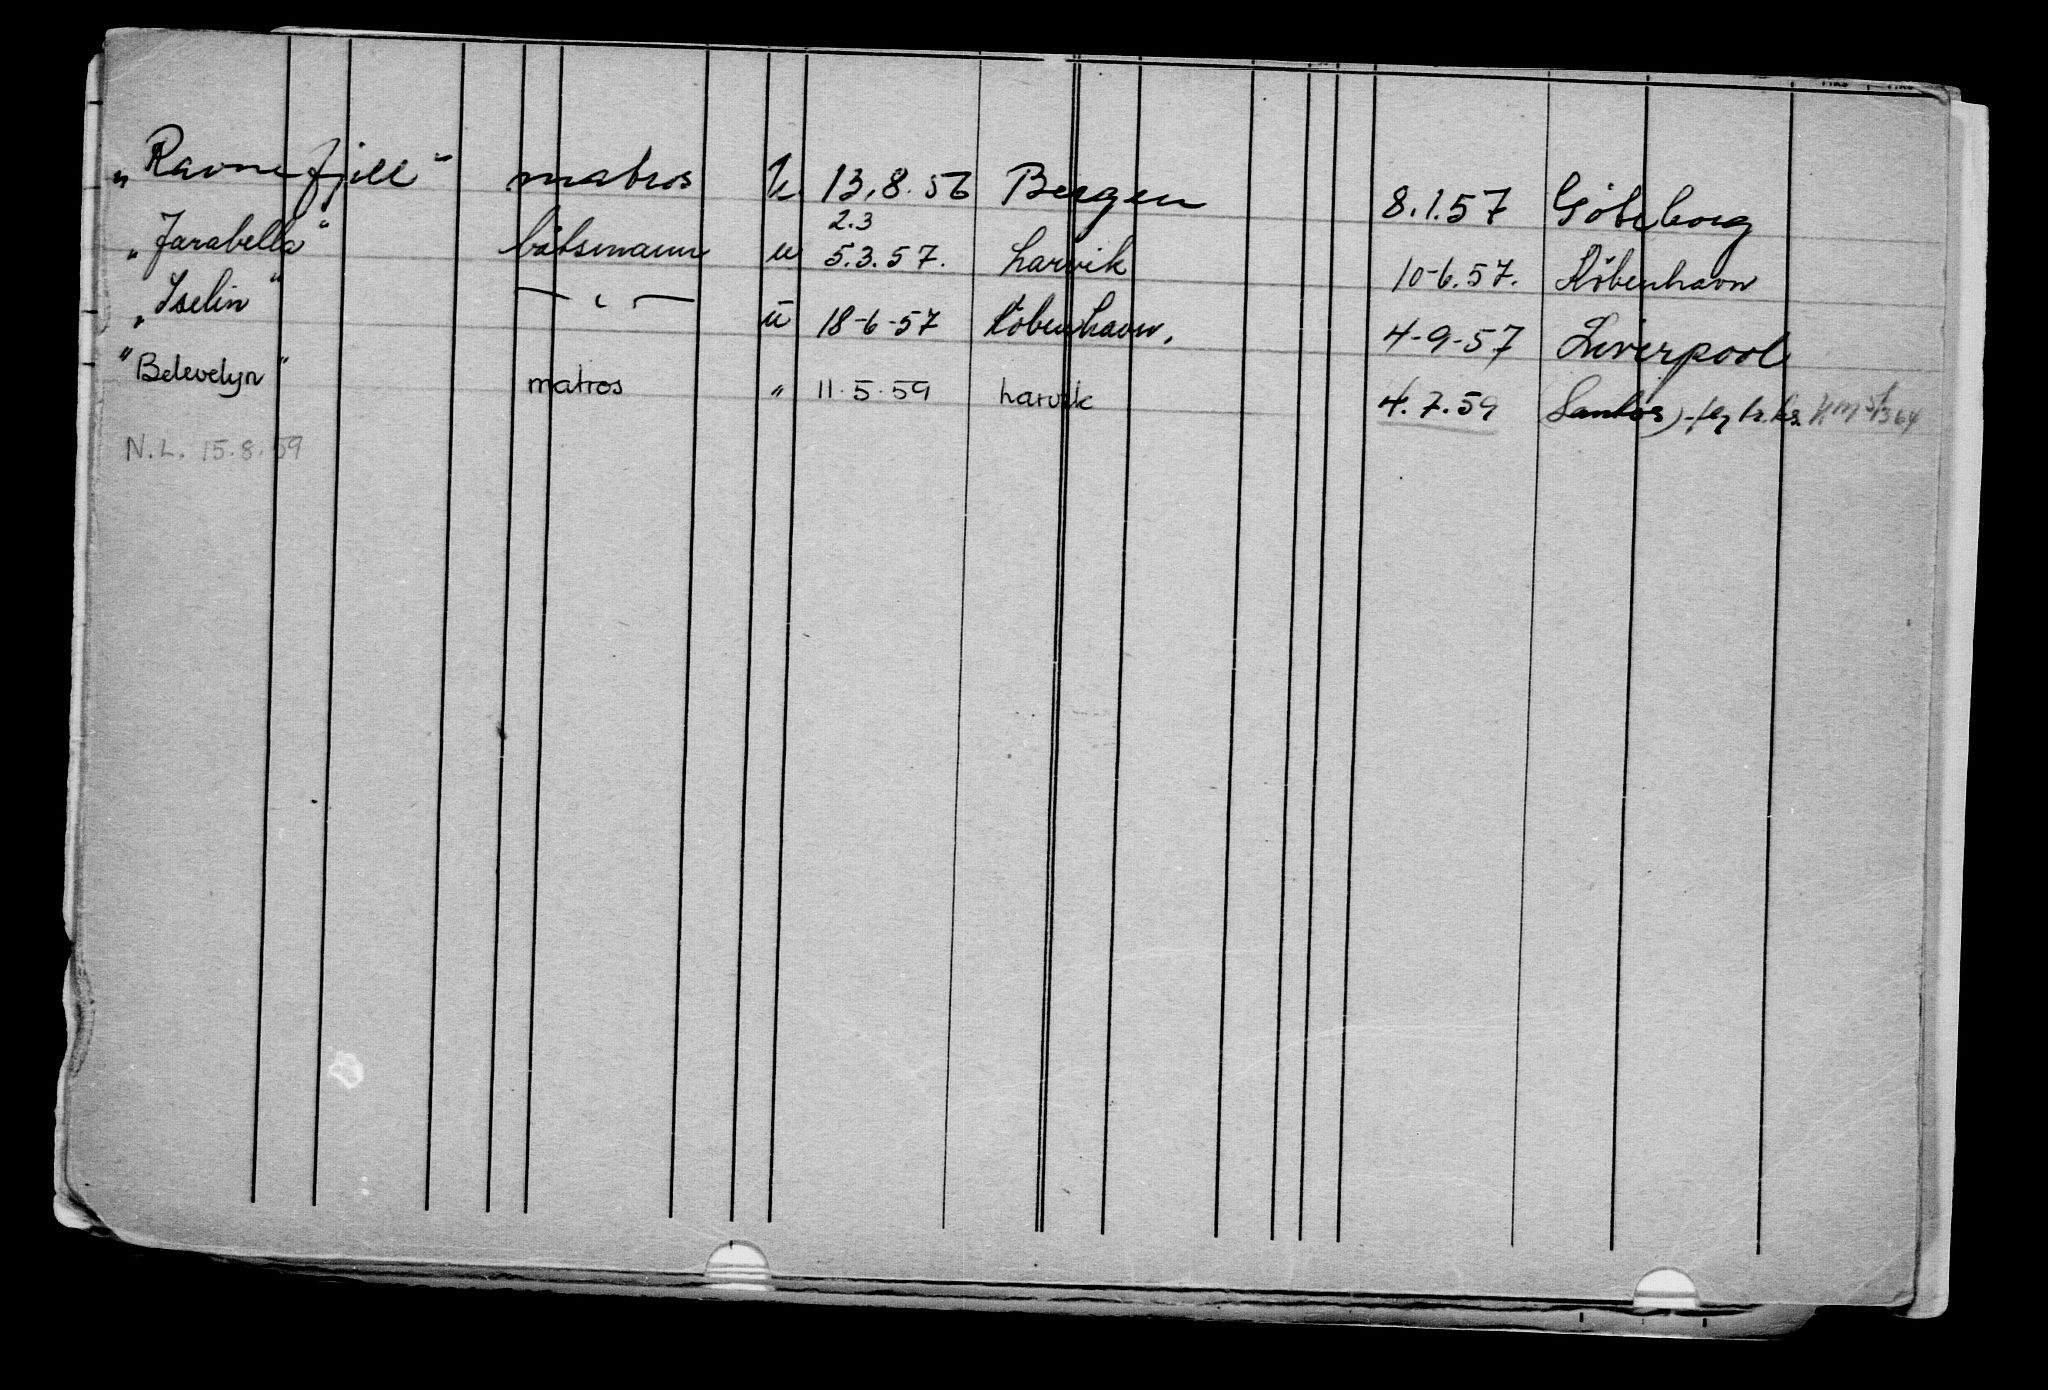 „Ravnefjell“ matros u 13.8.56 Bergen 8.1.57 Göteborg
2.3
„Jarabella“ båtsmann u 5.3.57. Larvik 10-6.57. København
„Iselin“ — „ — u 18-6-57 København. 4-9-57 Liverpool
"Belevelyn" matros " 11.5.59 Larvik 4.7.59 Santos)
N.L. 15.8.59